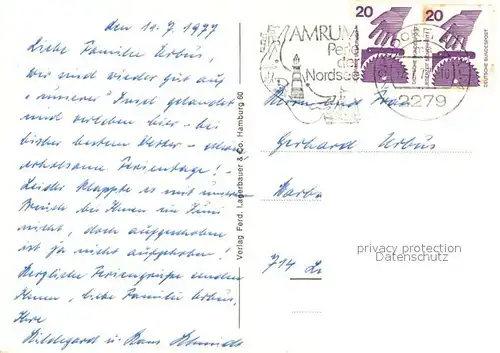 den 11.7.1977
Liebe Familie Erbus,
wir sind wieder gut auf
"unserer" Insel gelandet
und verleben hier - bei
bisher bestem Wetter -
erholsame Ferientage!
Leider klappte es mit unserem
Besuch bei Ihnen im Juni
nicht, doch aufgeschoben
ist ja nicht aufgehoben!
Herzliche Feriengrüße senden
Ihnen, liebe Familie Erbus,
Ihre
Hildegard u. Hans Schmidt
Verlag Ferd. Lagerbauer & Co. Hamburg 60
AMRUM
Perle
der
Nordsee
2279
20
20
DEUTSCHE BUNDESPOST
Herrn und Frau
Gerhard Erbus
714
privacy protection
Datenschutz